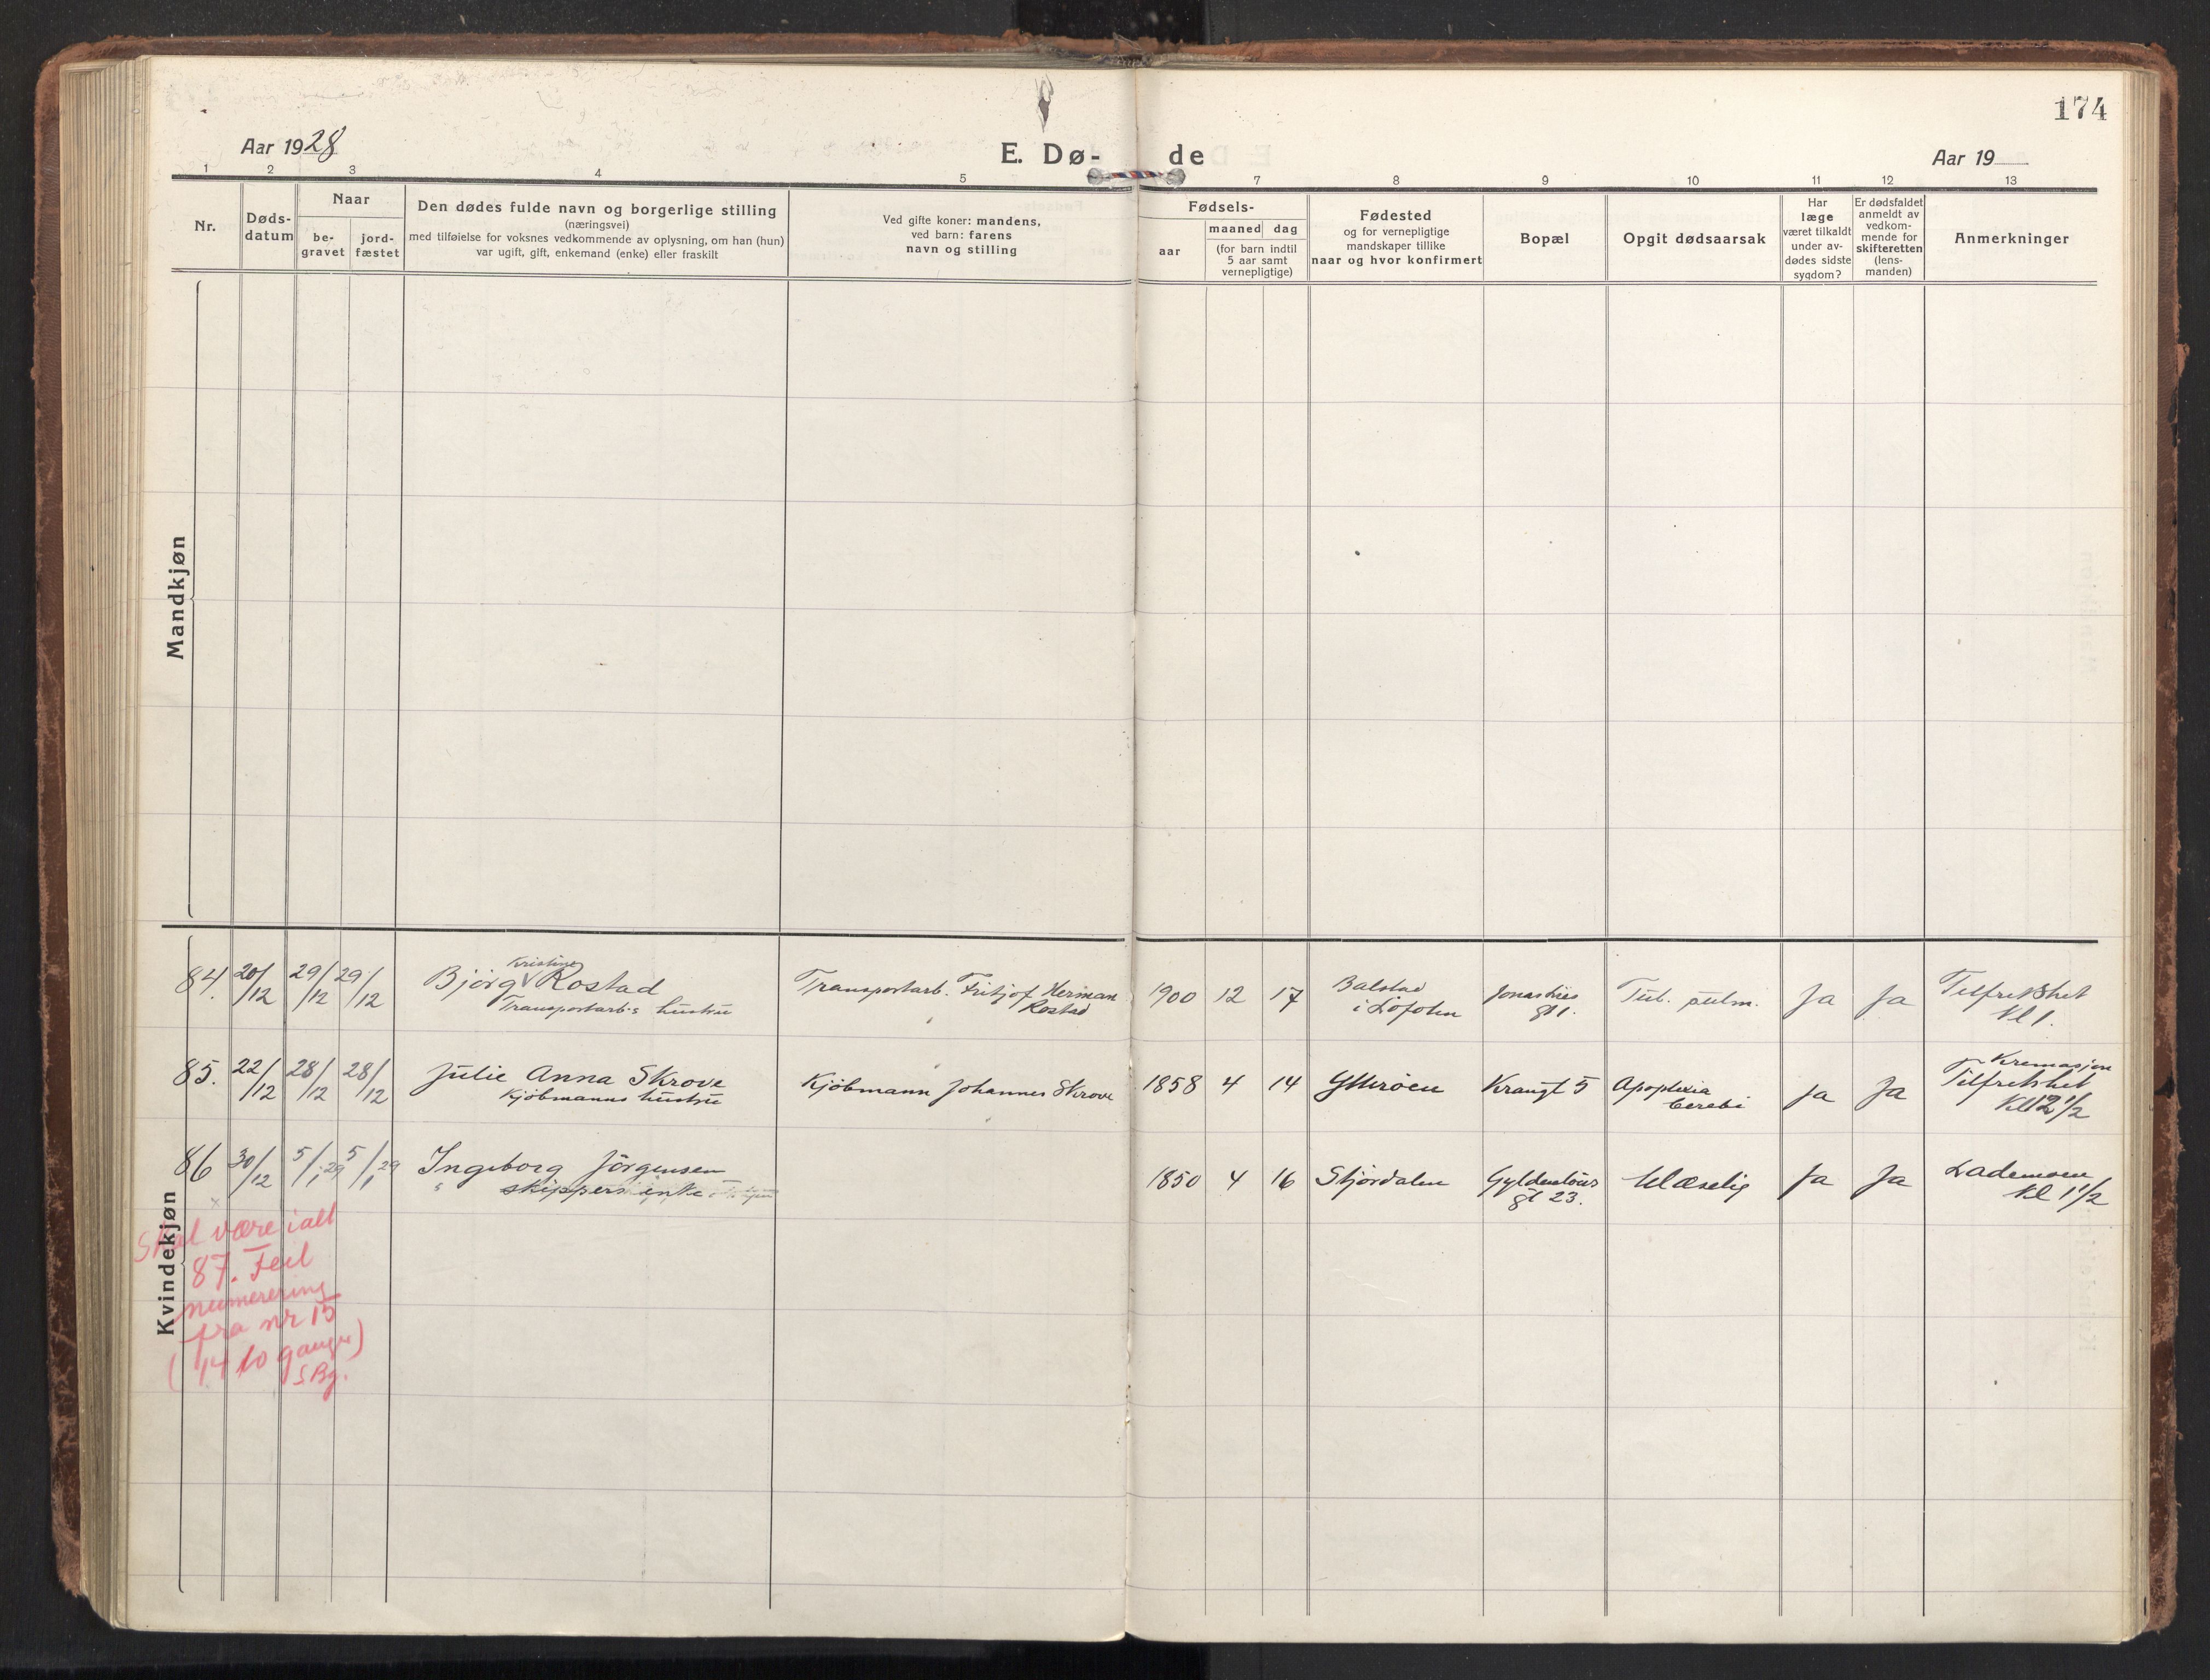 174
Aar 1928
E. Dø- de
Aar 19
1 2 3 4 5 7 8 9 10 11 12 13
Nr.
Døds-
datum
Naar
be-
gravet
jord-
fæstet
Den dødes fulde navn og borgerlige stilling
(næringsvei)
med tilføielse for voksnes vedkommende av oplysning, om han (hun)
var ugift, gift, enkemand (enke) eller fraskilt
Ved gifte koner: mandens,
ved barn: farens
navn og stilling
Fødsels-
aar
maaned dag
(for barn indtil
5 aar samt
vernepligtige)
Fødested
og for vernepligtige
mandskaper tillike
naar og hvor konfirmert
Bopæl
Opgit dødsaarsak
Har
læge
været tilkaldt
under av-
dødes sidste
sygdom?
Er dødsfaldet
anmeldt av
vedkom-
mende for
skifteretten
(lens-
manden)
Anmerkninger
Mandkjøn
84. 20/12 29/12 29/12
Kristine
Bjørg V Rostad
Transportarb.s hustru
Transportarb. Fritjof Herman
Rostad
1900 12 17
Balstad
i Lofoten
Jonas Lies
gt 1.
Tub. pulm.
Ja Ja
Tilfredshet
Kl 1.
85. 22/12 28/12 28/12
Julie Anna Skrove
Kjøbmanns hustru
Kjøbmann Johannes Skrove
1858 4 14
Ytterøen
Krangt 5
Apoplexia
Cerebi
Ja Ja
Kremasjon
Tilfredshet
Kl 12 1/2
86 30/12 5/1 29 5/1 29
Ingeborg Jørgensen
skippers enke
1850 4 16
Stjørdalen
Gyldenløves
gt 23.
Ulæselig
Ja Ja
Lademoen
Kl 1 1/2
Kvindekjøn
Skal være ialt
87. Feil
numerering
fra nr 15
(14 to ganger)
SBg.